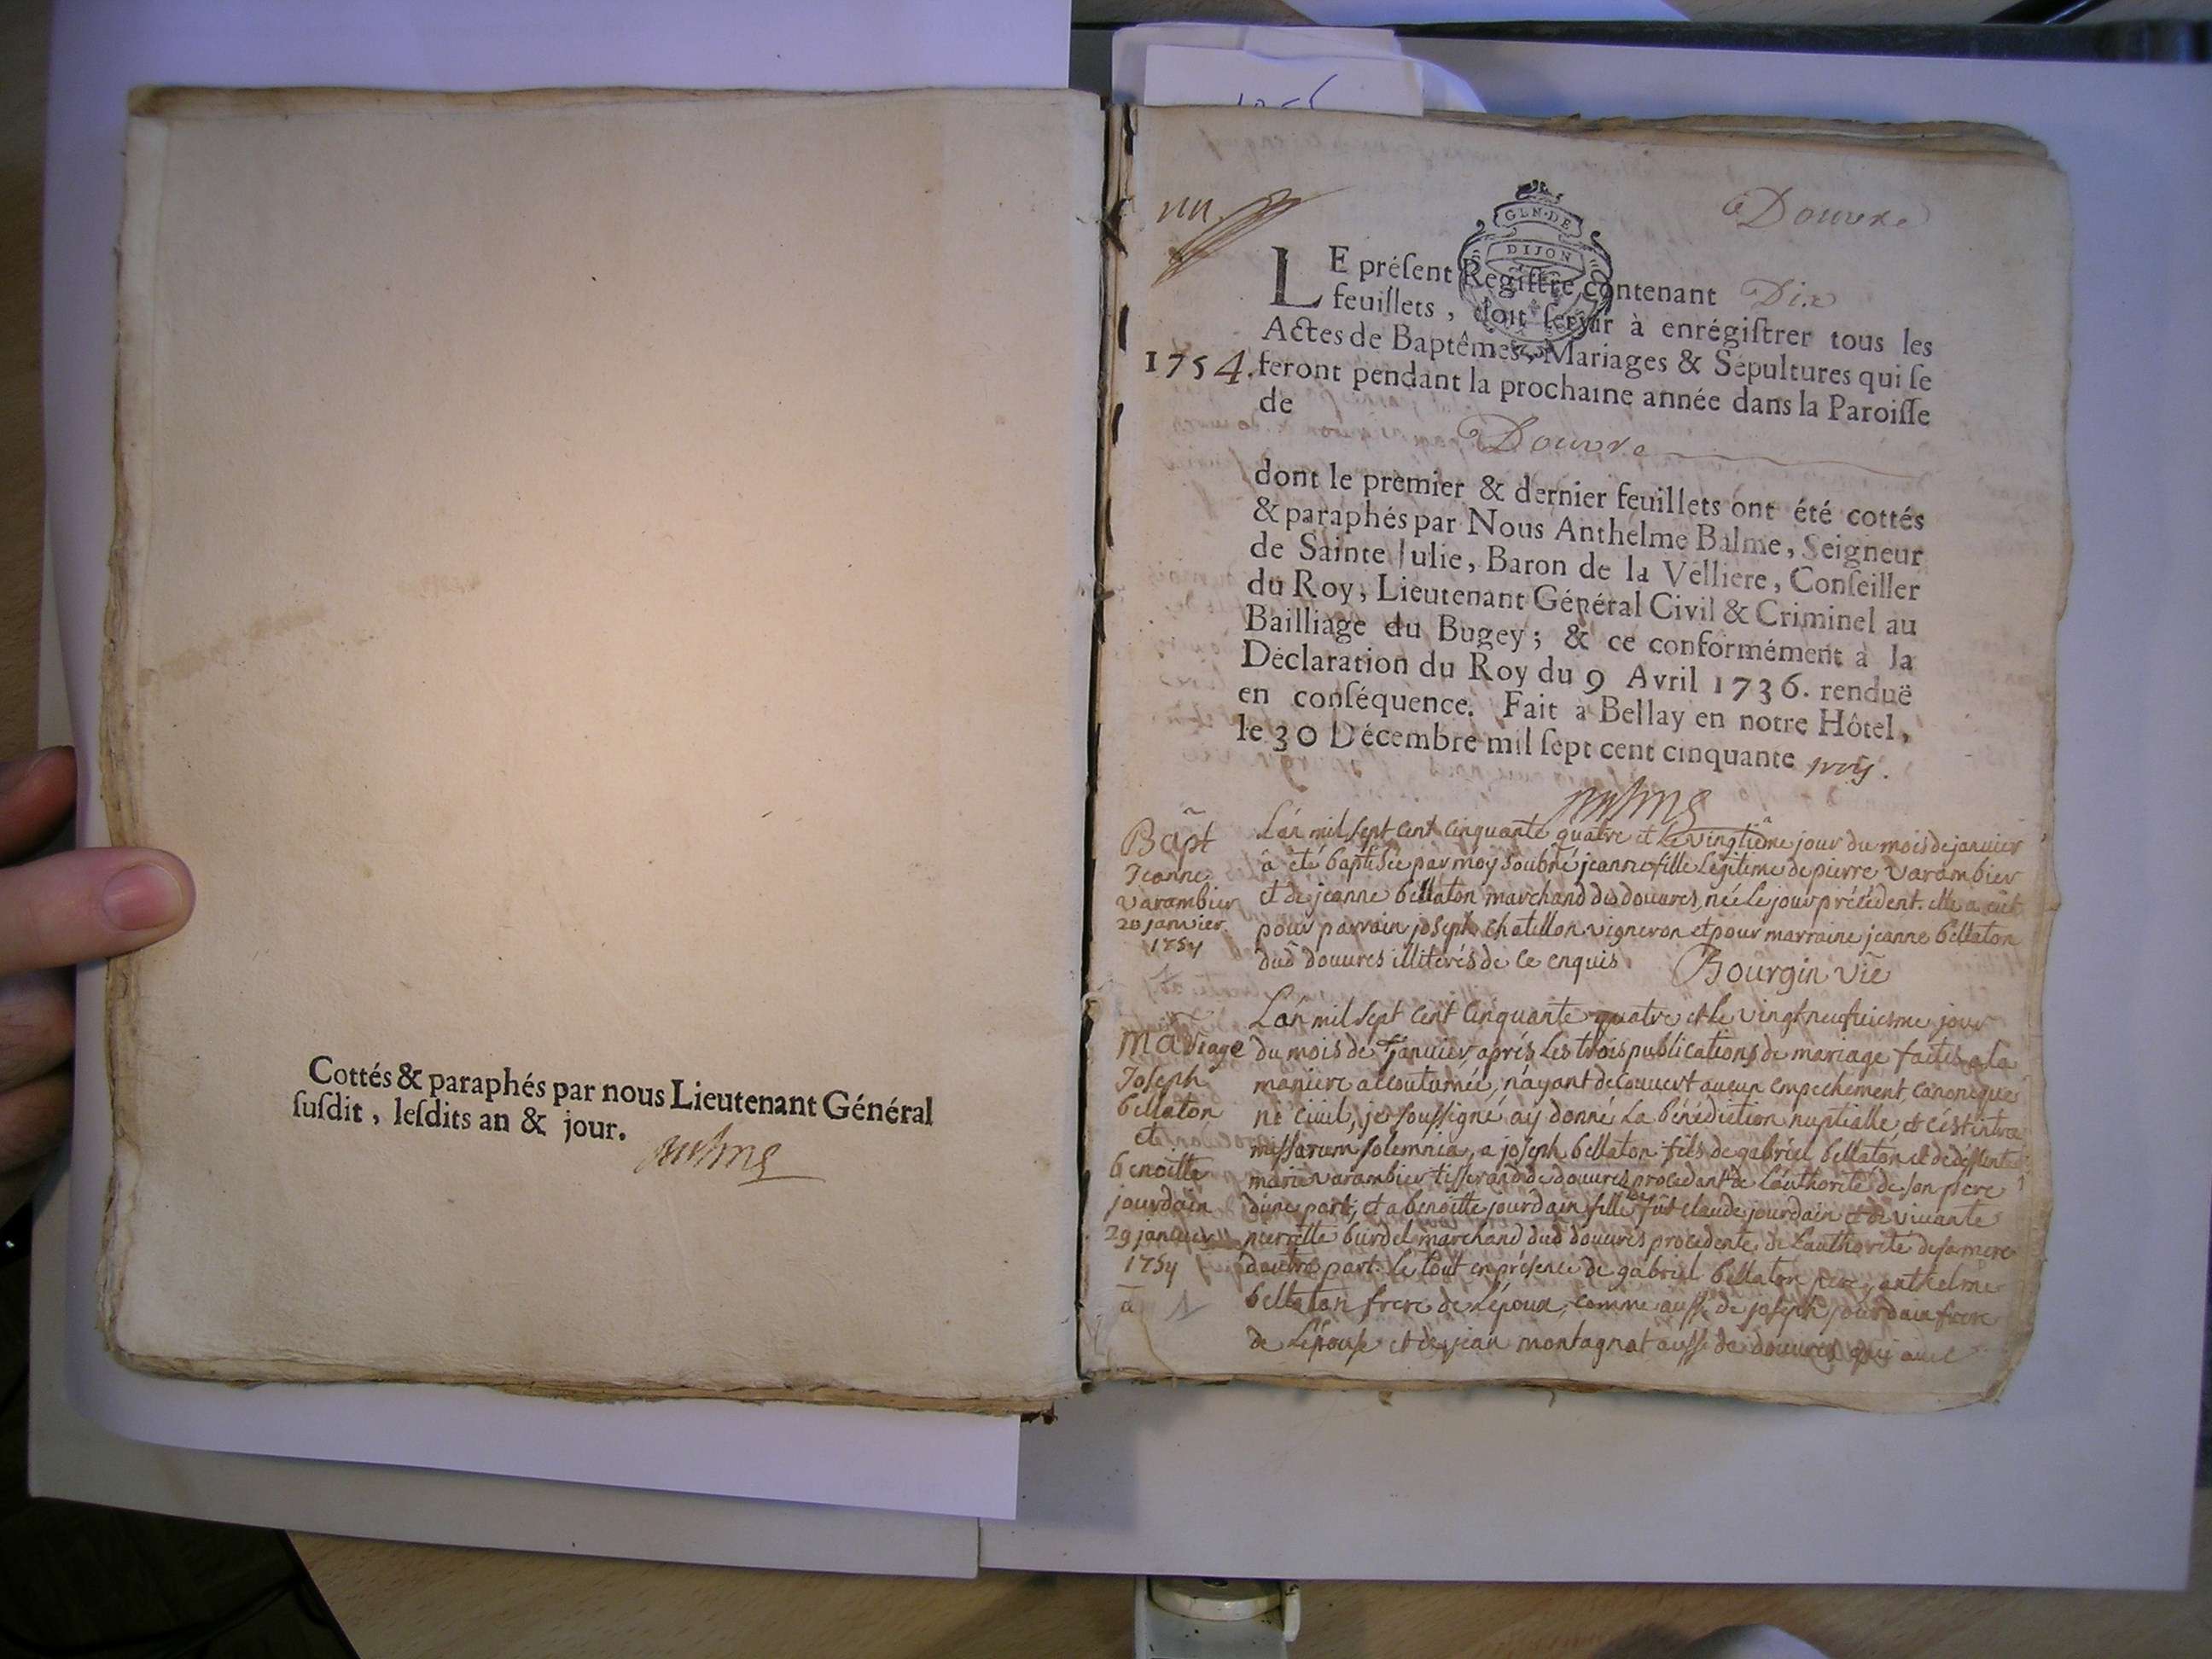 Cottés & paraphés par nous Lieutenant Général
ſuſdit, leſdits an & jour.
Douvre
GEN. DE
DIJON
LE préſent Regiſtre contenant Dix
feuillets, doit ſervir à enrégiſtrer tous les
Actes de Baptêmes, Mariages & Sépultures qui ſe
1754. feront pendant la prochaine année dans la Paroiſſe
de
Douvre
dont le premier & dernier feuillets ont été cottés
& paraphés par Nous Anthelme Balme, Seigneur
de Sainte Julie, Baron de la Velliere, Conſeiller
du Roy, Lieutenant Général Civil & Criminel au
Bailliage du Bugey; & ce conformément à la
Déclaration du Roy du 9 Avril 1736. renduë
en conſéquence. Fait à Bellay en notre Hôtel,
le 30 Décembre mil ſept cent cinquante troy.
Bapt
Jeanne
varambier
20 janvier
1754
L'an mil sept cent cinquante quatre et le vingtième jour du mois de janvier
a été baptisée par moy soubné jeanne fille légitime de pierre varambier
et de jeanne bellaton marchand dud douvres, née le jour précédent. elle a eut
pour parrain joseph chatillon vigneron et pour marraine jeanne bellaton
dud douvres illiterés de ce enquis Bourgin vic
Mariage
Joseph
bellaton
et
benoitte
jourdain
29 janvier
1754
L'an mil sept cent cinquante quatre et le vingtneufuiesme jour
du mois de Janvier, après les trois publications de mariage faites a la
maniere accoutumée, n'ayant decouvert aucun empechement canonique
ni civil, je soussigné ay donné la bénédiction nuptialle et c'est intra
missarum solemnia, a joseph bellaton fils de gabriel bellaton et de deffunte
marie varambier tisserand de douvres procedant de l'authorité de son pere
d'une part; et a benoitte jourdain fille de fut claude jourdain et de vivante
pierrette burdel marchand dud douvres procedente de l'authorité de sa mere
d'autre part. le tout en présence de gabriel bellaton pere, anthelme
bellaton frere de l'époux, comme aussi de joseph jourdain frere
de l'épouse et de jean montagnat aussi de douvres qui avec